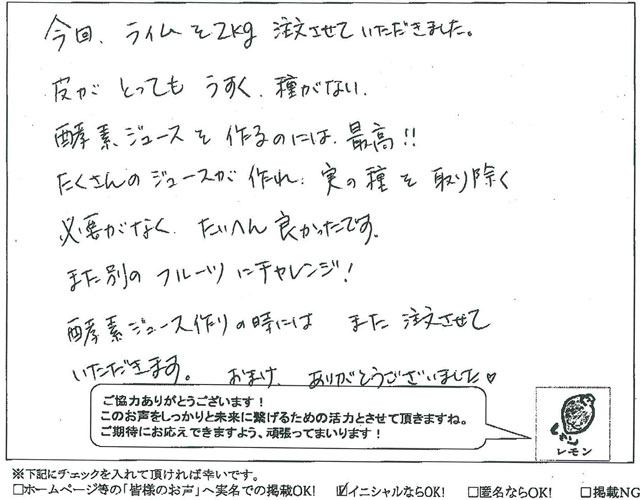 今回、ライムを2kg 注文させていただきました。
皮がとってもうすく、種がない、
酵素ジュースを作るのには、最高!!
たくさんのジュースが作れ、実の種を取り除く
必要がなく、たいへん良かったです。
また別のフルーツにチャレンジ!
酵素ジュース作りの時には また注文させて
いただきます。 おまけ、ありがとうございました♥
ご協力ありがとうございます!
このお声をしっかりと未来に繋げるための活力とさせて頂きますね。
ご期待にお応えできますよう、頑張ってまいります!
レモン
※下記にチェックを入れて頂ければ幸いです。
□ホームページ等の「皆様のお声」へ実名での掲載OK! ☑イニシャルならOK! □匿名ならOK! □掲載NG